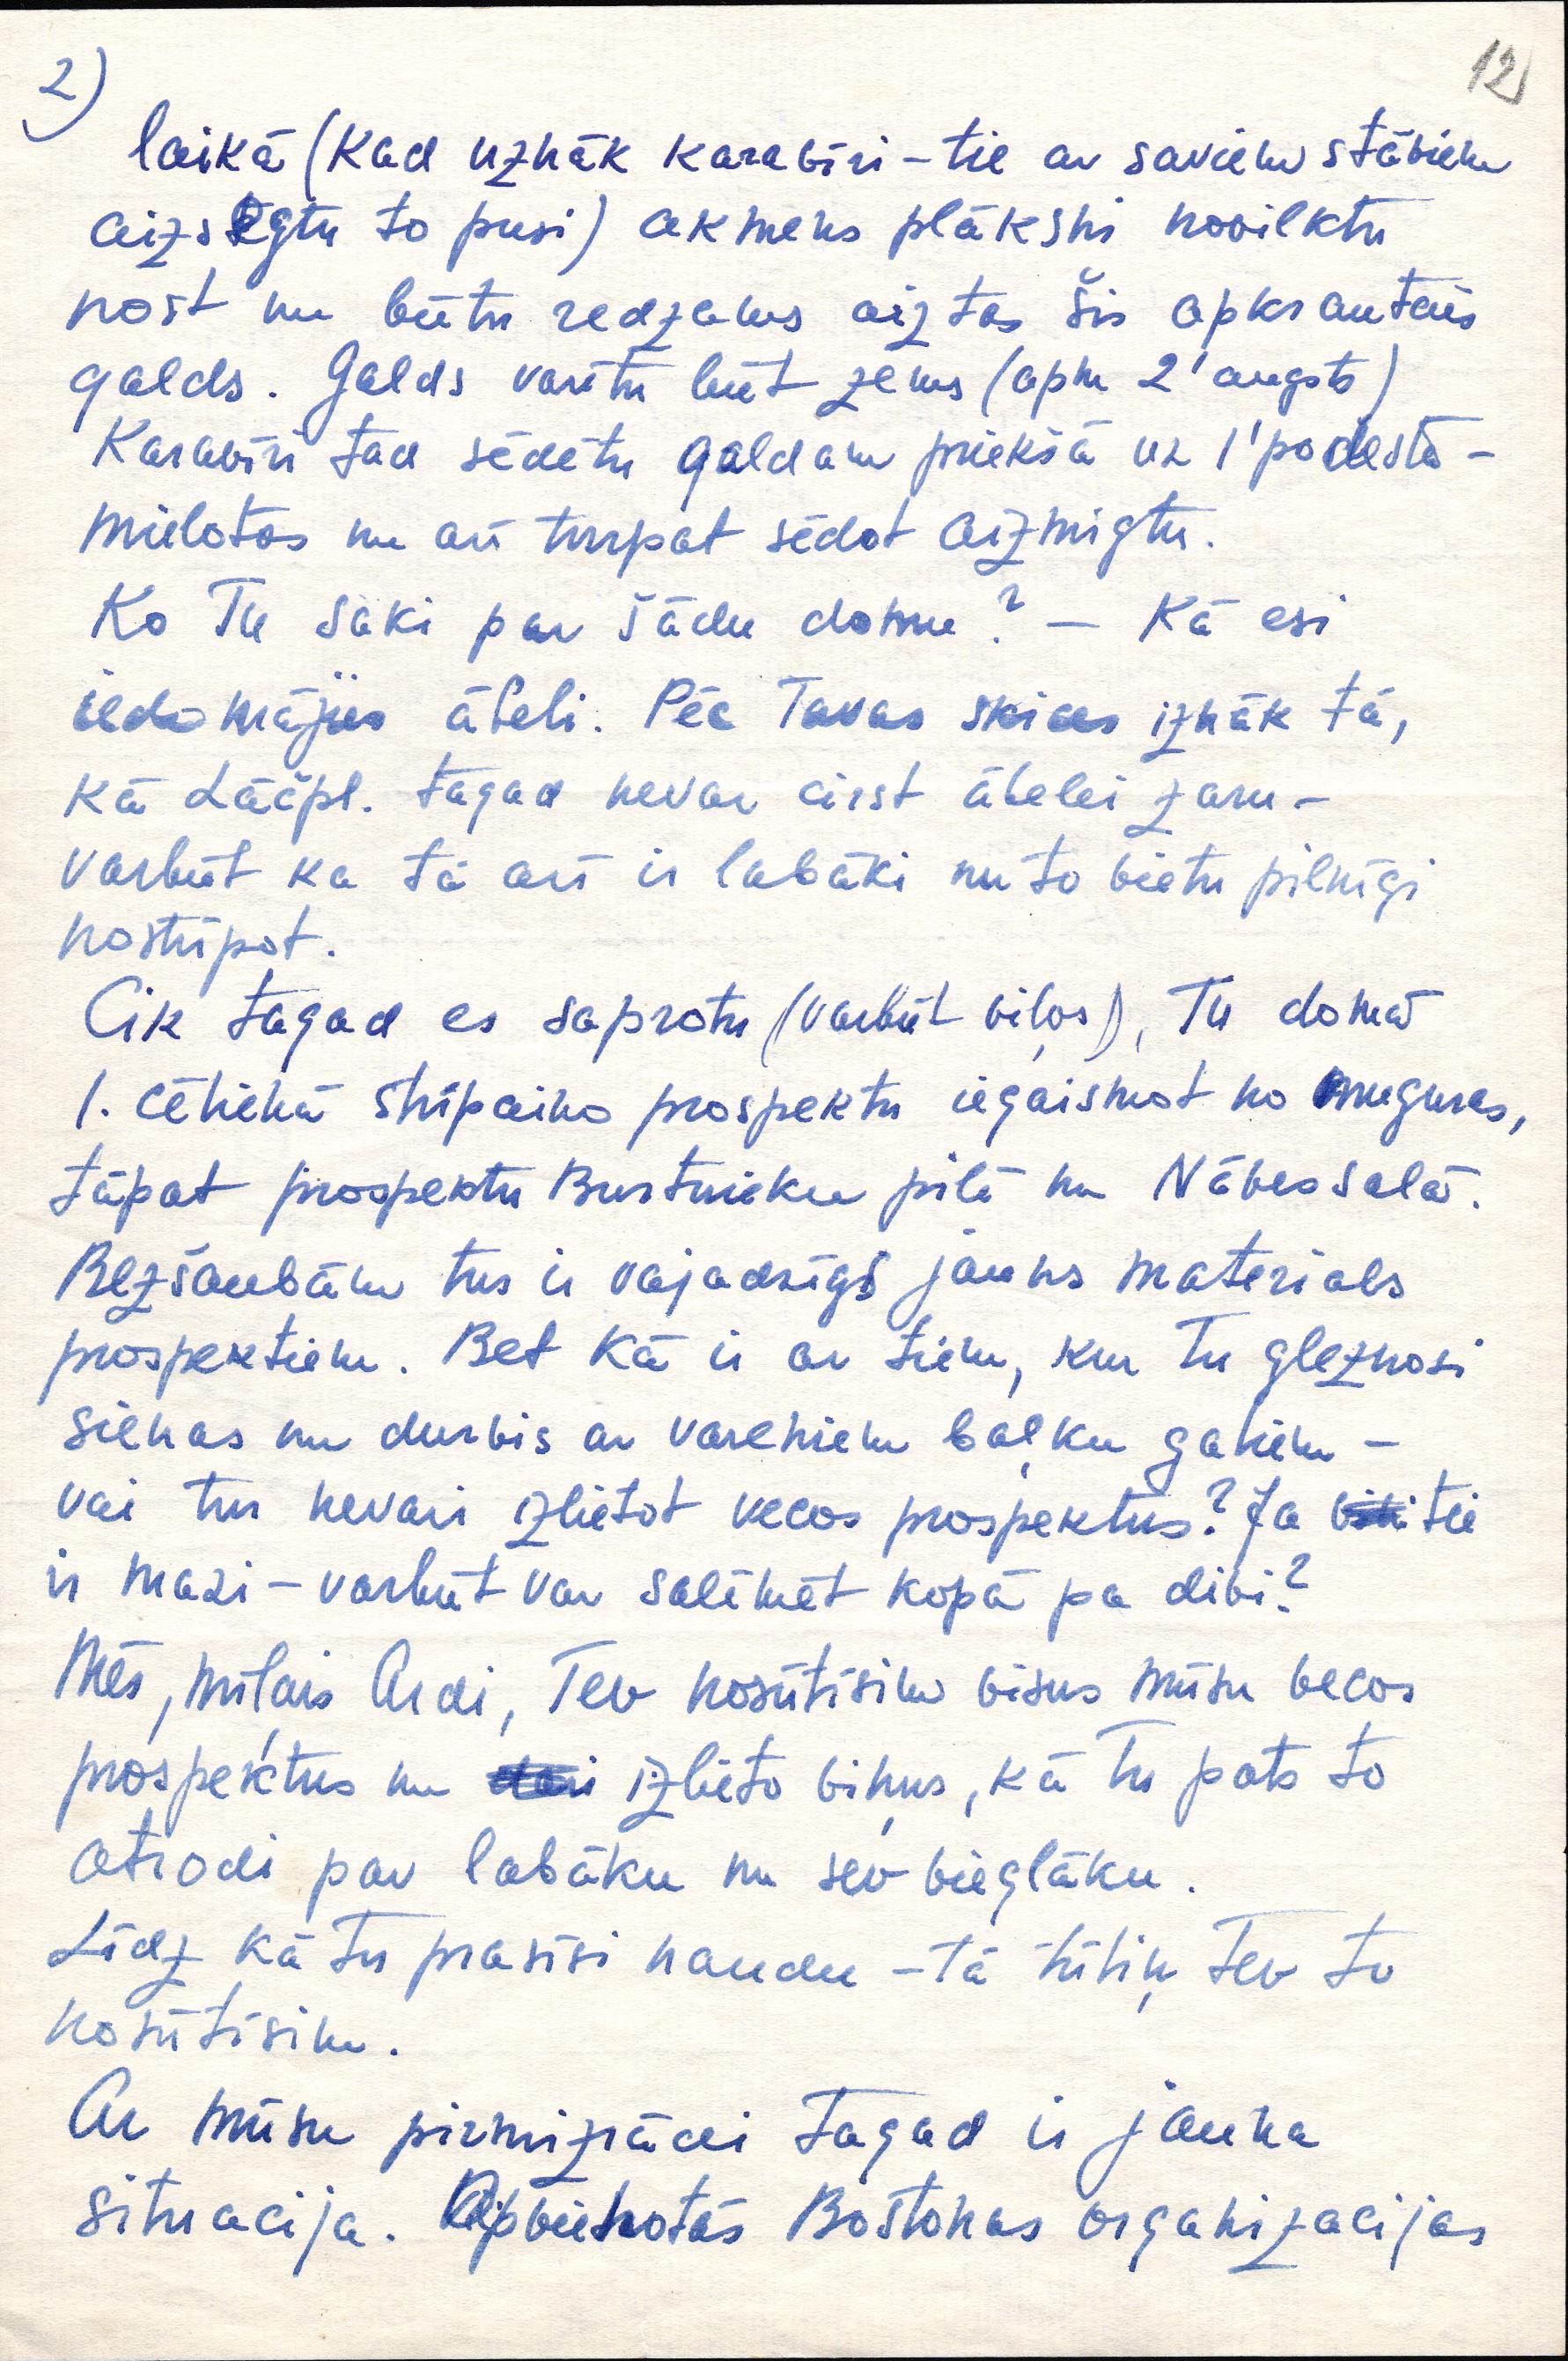 2)
12)
laikā (kad uznāk karavīri – tie ar saviem stāviem
aizsegtu to pusi) akmens plāksni novilktu
nost un būtu redzams aiz tās šis apkrautais
galds. Galds varētu būt zems (apm 2' augsts)
Karavīri tad sēdētu galdam priekšā uz 1' podesta –
mielotos un arī turpat sēdot aizmigtu.
Ko Tu saki par šādu domu? – Kā esi
iedomājies ābeli. Pēc Tavas skices iznāk tā,
kā Lāčpl. tagad nevar cirst ābelei zaru –
varbūt ka tā arī ir labāki un to vietu pilnīgi
nostrīpot.
Cik tagad es saprotu (varbūt viļos), Tu domā
1. cēlienā strīpaino prospektu iegaismot no muguras,
tāpat prospektu Burtnieku pilī un Nāves salā.
Bezšaubām tur ir vajadzīgs jauns materials
prospektiem. Bet kā ir ar tiem, kur Tu gleznosi
sienas un durvis ar vareniem baļķu galiem –
vai tur nevari izlietot vecos prospektus? Ja tie
ir mazi – varbūt var salīmēt kopā pa divi?
Mēs, mīļais Ardi, Tev nosūtīsim visus mūsu vecos
prospektus un izlieto viņus, kā Tu pats to
atrodi par labāku un sev vieglāku.
Līdz kā Tu prasīsi naudu – tā tūliņ Tev to
nosūtīsim.
Ar mūsu pirmizrādi tagad ir jauna
situacija. Apvienotās Bostonas organizacijas